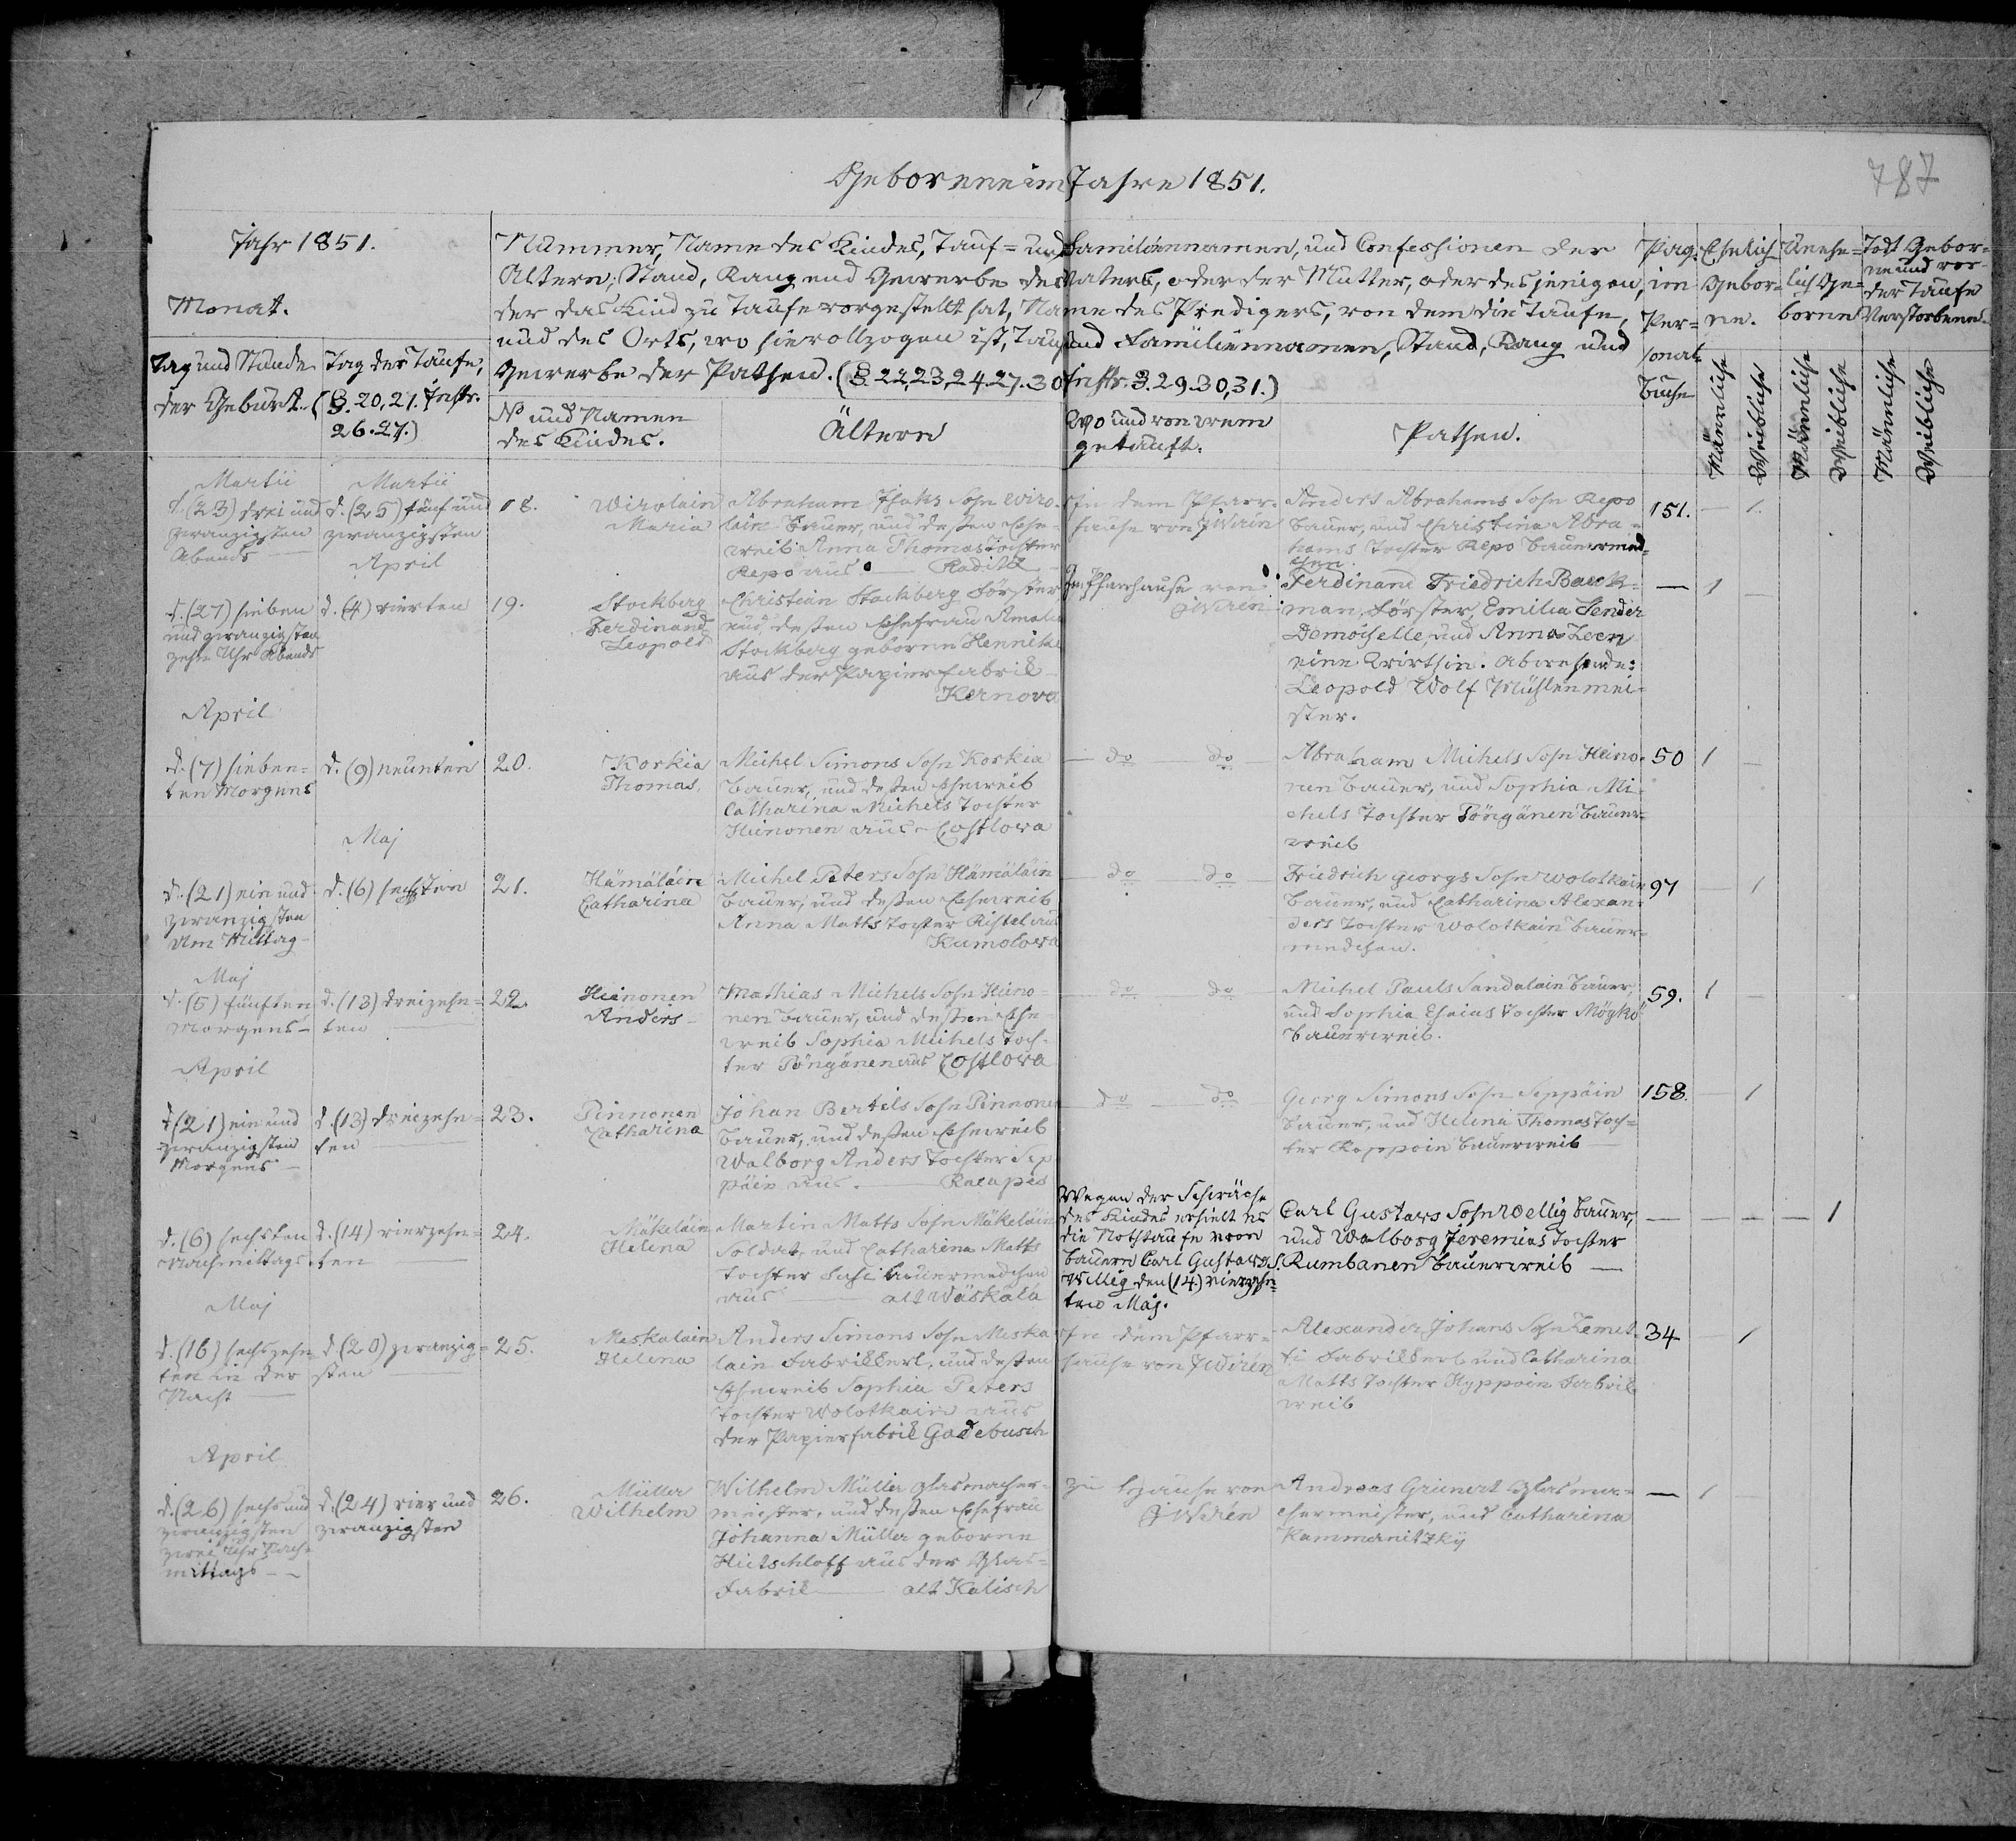 Geborene im Jahre 1851.
787
Jahr 1851.
Monat.
Tag und Stunde
der Geburt.
Tag der Taufe,
(§. 20, 21. Instr.
26. 27.)
Nummer, Name des Kindes, Tauf= und Familiennamen, und Confessionen der
Ältern; Stand, Rang und Gewerbe des Vaters, oder der Mutter, oder desjenigen,
der das Kind zu Taufe vorgestellt hat, Name des Predigers, von dem die Taufe,
und des Orts, wo sie vollzogen ist, Tauf und Familiennamen, Stand, Rang und
Gewerbe der Pathen. (§. 22, 23, 24. 27. 30 Instr. §. 29. 30, 31.)
No und Namen
des Kindes.
Ältern
Wo und von wem
getauft.
Pathen.
Pag.
im
Per=
sonal
Buche
Ehelich
Gebor=
ne.
Unehe=
lich Ge=
borne
Todt Gebor=
ne und vor
der Taufe
Verstorbene.
Männliche
Weibliche
Männliche
Weibliche
Männliche
Weibliche
Martii
d. (23) drei und
zwanzigsten
Abends
Martii
d. (25) fünf und
zwanzigsten
18.
Wirolain
Maria
Abraham Isaks Sohn Wiro=
lain Bauer, und deßen Ehe=
weib Anna Thomas Tochter
Repo aus Raditz
In dem Pfarr=
hause von J Wirén
Anders Abrahams Sohn Repo
Bauer, und Christina Abra=
hams Tochter Repo Bauermed=
chen.
151. — 1.
d. (27) sieben
und zwanzigsten
zehn Uhr Abends
April
d. (4) vierten
19.
Stockberg
Ferdinand
Leopold
Christian Stockberg Förster
und deßen Ehefrau Amalia
Stockberg geborne Hennike
aus der Papierfabrik
Kernova
Im Pfarrhause von
J Wirén
Ferdinand Friedrich Bauk=
man, Förster, Emilia Sender
Domoiselle, und Anna Leen
eine Wirthin. Abwesende:
Leopold Wolf Mühlenmei=
ster.
— 1 —
April
d. (7) sieben=
ten Morgens
d. (9) neunten
20.
Korkia
Thomas.
Michel Simons Sohn Korkia
Bauer, und deßen Eheweib
Catharina Michels Tochter
Hiinonen aus Costlowa
— do — do
Abraham Michels Sohn Heino=
nen Bauer, und Sophia Mi=
chels Tochter Pöngänen Bauer=
weib
50 1 —
d. (21) ein und
zwanzigsten
Am Mittag
Maj
d. (6) sechsten
21.
Hämäläin
Catharina
Michel Peters Sohn Hämäläin
Bauer, und deßen Eheweib
Anna Matts Tochter Ristel aus
Kumolowa
— do — do
Friedrich Georgs Sohn Wolotkain
Bauer, und Catharina Alexan=
ders Tochter Wolotkain Bauer=
medchen.
97 — 1
Maj
d. (5) fünften
Morgens
d. (13) dreizehn=
ten
22.
Hiinonen
Anders
Mathias Michels Sohn Hiino=
nen Bauer, und deßen Ehe=
weib Sophia Michels Toch=
ter Pöngänen aus Costlowa
— do — do
Michel Pauls Sandalain Bauer,
und Sophia Esaias Tochter Mögkö
Bauerweib.
59. 1 —
April
d. (21) ein und
zwanzigsten
Morgens
d. (13) dreizehn=
ten
23.
Pinnonen
Catharina
Johan Bertils Sohn Pinnonen
Bauer, und deßen Eheweib
Walborg Anders Tochter Sep
päin aus. Racapès
— do — do
Georg Simons Sohn Seppäin
Bauer, und Helena Thomas Toch=
ter Roppoin Bauerweib
158. — 1
d. (6) sechsten
Nachmittags
d. (14) vierzehn=
ten
24.
Mäkeläin
Helena
Martin Matts Sohn Mäkeläin
Soldat, und Catharina Matts
Tochter Susi Bauermedchen
aus alt Wäskälä
Wegen der Schwäche
des Kindes erhielt es
die Nothtaufe vom
Bauern Carl Gustavs S.
Wellig den (14.) vierzehn=
ten Maj.
Carl Gustavs Sohn Wellig Bauer,
und Walborg Jeremias Tochter
Rumbanen Bauerweib
— — — — 1
Maj
d. (16) sechszehn=
ten in der
Nacht
d. (20) zwanzig=
sten
25.
Meskalain
Helena
Anders Simons Sohn Meska
lain Fabrikkerl, und deßen
Eheweib Sophia Peters
Tochter Wolotkain aus
der Papierfabrik Gadebusch
In dem Pfarr=
hause von J Wirén
Alexander Johans Sohn Lemet=
ti Fabrikkerl und Catharina
Matts Tochter Hyppoin Fabrik
weib
34 — 1
April
d. (26) sechs und
zwanzigsten
zwei Uhr Nach=
mittags
d. (24) vier und
zwanzigsten
26.
Müller
Wilhelm
Wilhelm Müller Glasmacher=
meister, und deßen Ehefrau
Johanna Müller geborne
Hietschloff aus der Glas=
fabrik alt Kalisch
zu Hause von
J Wirén
Andreas Grünert Glasma=
chermeister, und Catharina
Kammenitzkÿ
— 1 —